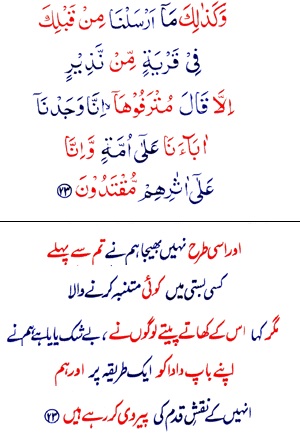 وَكَذٰلِكَ مَاۤ اَرْسَلْنَا مِنْ قَبْلِكَ
فِىْ قَرْيَةٍ مِّنْ نَّذِيْرٍ
اِلَّا قَالَ مُتْرَفُوْهَاۤ ۙ اِنَّا وَجَدْنَاۤ
اٰبَآءَنَا عَلٰٓى اُمَّةٍ وَّاِنَّا
عَلٰٓى اٰثٰرِهِمْ مُّقْتَدُوْنَ ﴿۲۳﴾
اور اسی طرح نہیں بھیجا ہم نے تم سے پہلے
کسی بستی میں کوئی متنبہ کرنے والا
مگر کہا اس کے کھاتے پیتے لوگوں نے ، بے شک پایا ہے ہم نے
اپنے باپ دادا کو ایک طریقہ پر اور ہم
انہیں کے نقشِ قدم کی پیروی کر رہے ہیں ﴿۲۳﴾